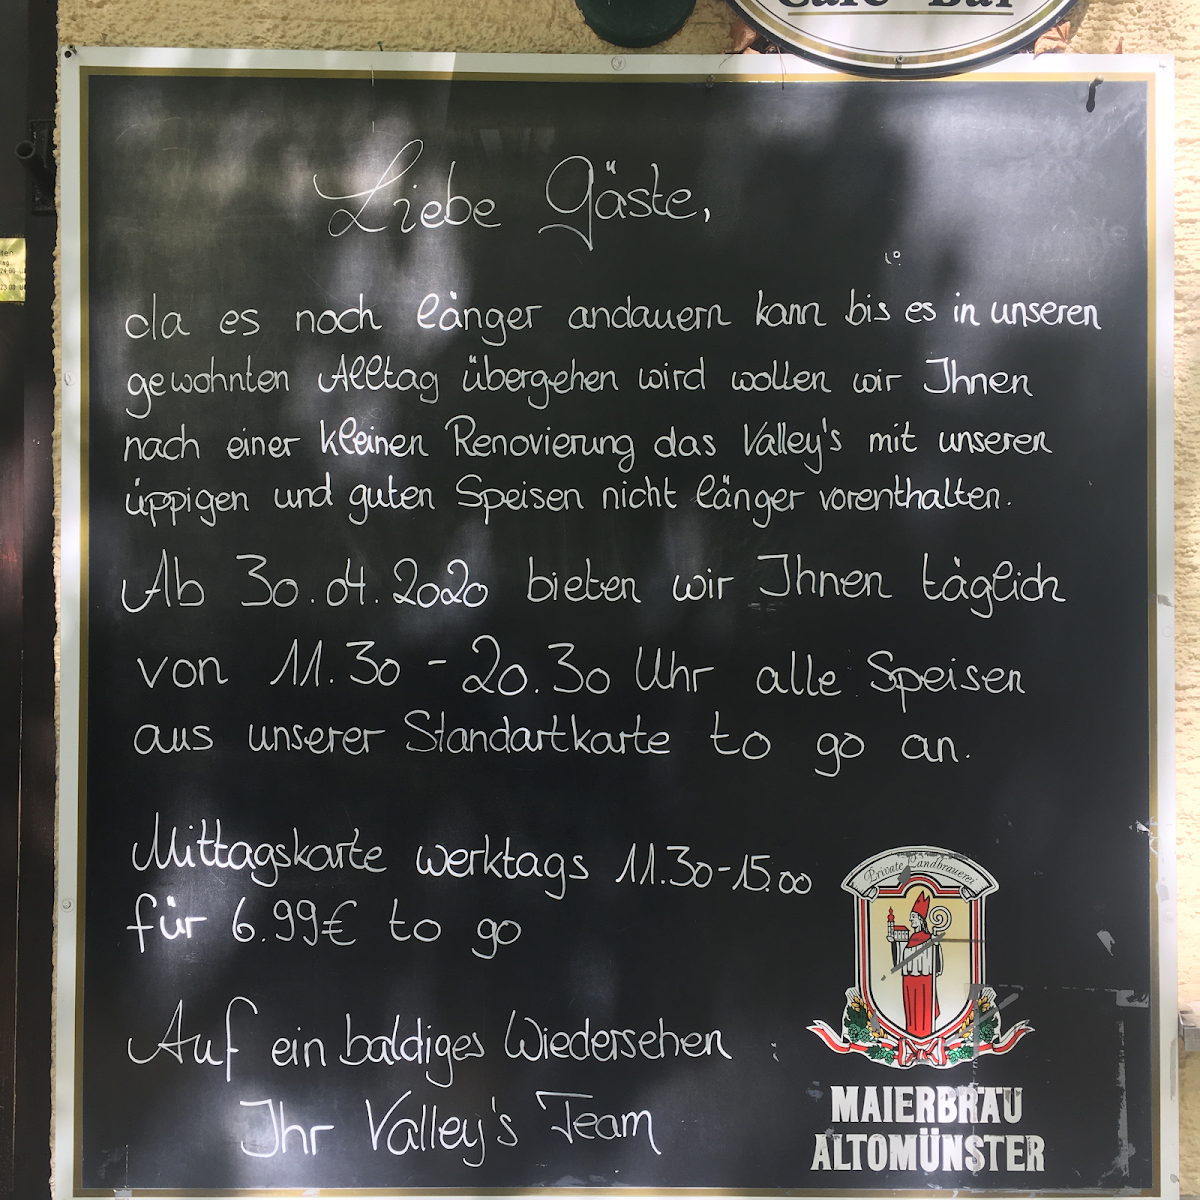 Café Bar
Liebe Gäste,
da es noch länger andauern kann bis es in unseren
gewohnten Alltag übergehen wird wollen wir Ihnen
nach einer kleinen Renovierung das Valley's mit unseren
üppigen und guten Speisen nicht länger vorenthalten.
Ab 30.04.2020 bieten wir Ihnen täglich
von 11.30 - 20.30 Uhr alle Speisen
aus unserer Standartkarte to go an.
Mittagskarte werktags 11.30-15.00
für 6.99€ to go
Auf ein baldiges Wiedersehen
Ihr Valley's Team
Private Landbrauerei
MAIERBRÄU
ALTOMÜNSTER